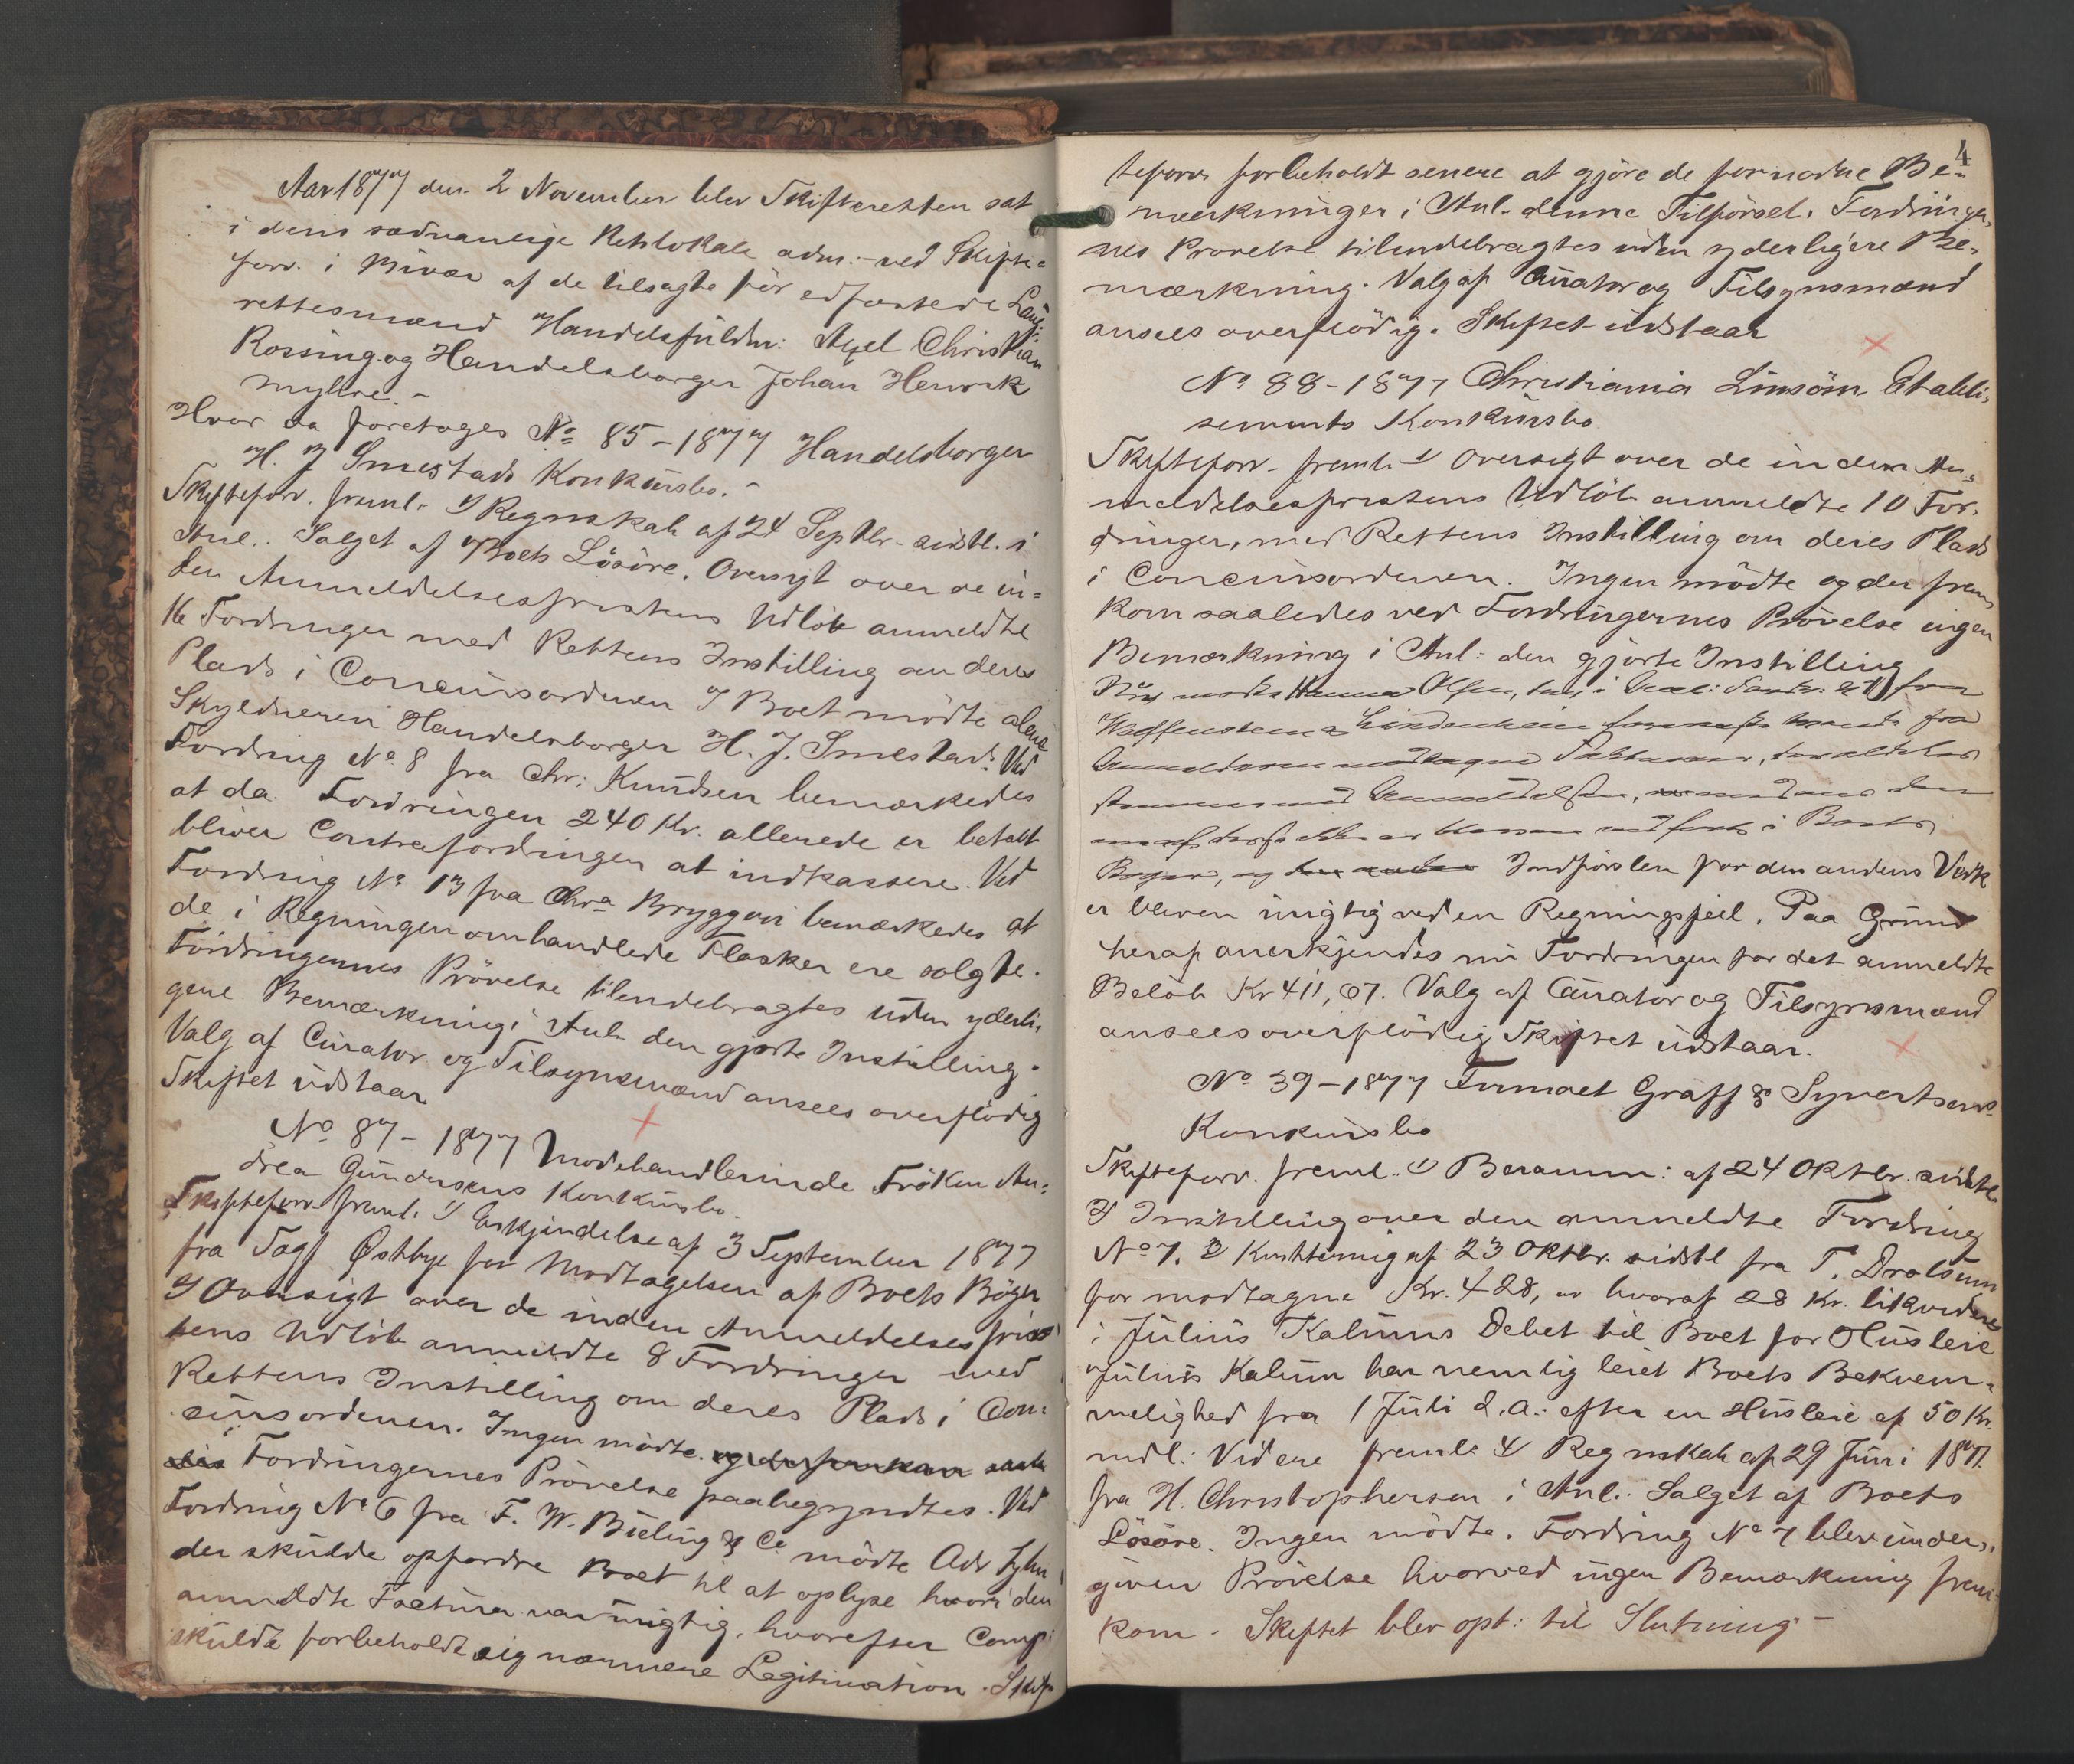 Aar 1877 den 2 November blev Skifteretten sat
i dens sædvanlige Retslokale adm: ved Skifte=
forv. i Bivær af de tilsagte før edfæstede Laug:
rettesmænd Handelsfuldm: Axel Christian
Rossing og Handelsborger Johan Henrik
Myhre. -
Hvor da foretoges No 85 - 1877 Handelsborger
H. J Smestads Konkursbo. -
Skifteforv. freml. 1) Regnskab af 24 Septbr. sidstl. i
Anl. Salget af Boets Løsøre. Oversigt over de in=
den Anmeldelsesfristens Udløb anmeldte
16 Fordringer med Rettens Instilling om deres
Plads i Concursordenen I Boet mødte alene
Skyldneren Handelsborger H. J. Smestad. Ved
Fordring No 8 fra Chr: Knudsen bemærkedes
at da Fordringen 240 Kr. allerede er betalt
bliver Contrafordringen at indkassere. Ved
Fordring No 13 fra Chra Bryggeri bemærkedes at
de i Regningen omhandlede Flasker ere solgte.
Fordringernes Prøvelse tilendebragtes uden yderli=
gere Bemærkning i Anl. den gjorte Instilling.
Valg af Curator og Tilsynsmænd ansees overflødig
Skiftet udstaar
No 87 - 1877 Modehandlerinde Frøken An=
drea Gundersens Konkursbo.
Skifteforv. freml. 1) Erkjendelse af 3 September 1877
fra Sagf Østbye for Modtagelsen af Boets Bøger
2) Oversigt over de inden Anmeldelsesfris
tens Udløb anmeldte 8 Fordringer med
Rettens Instilling om deres Plads i Con=
cursordenen. Ingen mødte. og der fremkom saale
des Fordringernes Prøvelse paabegyndtes. Ved
Fordring No 6 fra F. W. Bieling & Co mødte Adv
der skulde opfordre Boet til at oplyse hvori den
anmeldte Factura var urigtig, hvorefter Comp:
skulde forbeholdt sig nærmere Legitimation. Skif
4
teforv forbeholdt senere at gjøre de fornødne Be=
mærkninger i Anl. denne Tilførsel. Fordringer
nes Prøvelse tilendebragtes uden yderligere Be=
mærkning. Valg af Curator og Tilsynsmænd
ansees overflødig. Skiftet udstaar
No 88 - 1877 Christiania Limsøm Etabli=
sements Konkursbo
Skifteforv. freml. 1) Oversigt over de inden An=
meldelsesfristens Udløb anmeldte 10 For=
dringer, med Rettens Instilling om deres Plads
i Concursordenen. Ingen mødte og der frem
kom saaledes ved Fordringernes Prøvelse ingen
Bemærkning i Anl: den gjorte Instilling
fra
Lindenhein fra
stemmer med Anmeldelsen, den
i Boets
Bøger, og Indførslen for den andens Vedk
er bleven urigtig ved en Regningsfeil. Paa Grund
heraf anerkjendes nu Fordringen for det anmeldte
Beløb Kr 411,07. Valg af Curator og Tilsynsmænd
ansees overflødig Skiftet udstaar.
No 39 - 1877 Firmaet Graff & Syvertsens
Konkursbo
Skifteforv. freml. 1) Beramm: af 24 Oktbr. sidstl.
2) Instilling over den anmeldte Fordring
No 7. 3) Kvittering af 23 Oktbr. sidstl fra T. Drolsum
for modtagne Kr. 428, hvoraf 28 Kr. likvideres
i Julius Kalums Debet til Boet for Husleie
Julius Kalum har nemlig leiet Boets Bekvem=
melighed fra 1 Juli d. a. efter en Husleie af 50 Kr.
mdl: Videre freml: 4) Regnskab af 29 Juni 1877.
fra H. Christophersen i Anl. Salget af Boets
Løsøre. Ingen mødte. Fordring No 7 blev under=
given Prøvelse hvorved ingen Bemærkning frem
kom. Skiftet blev opt: til Slutning -